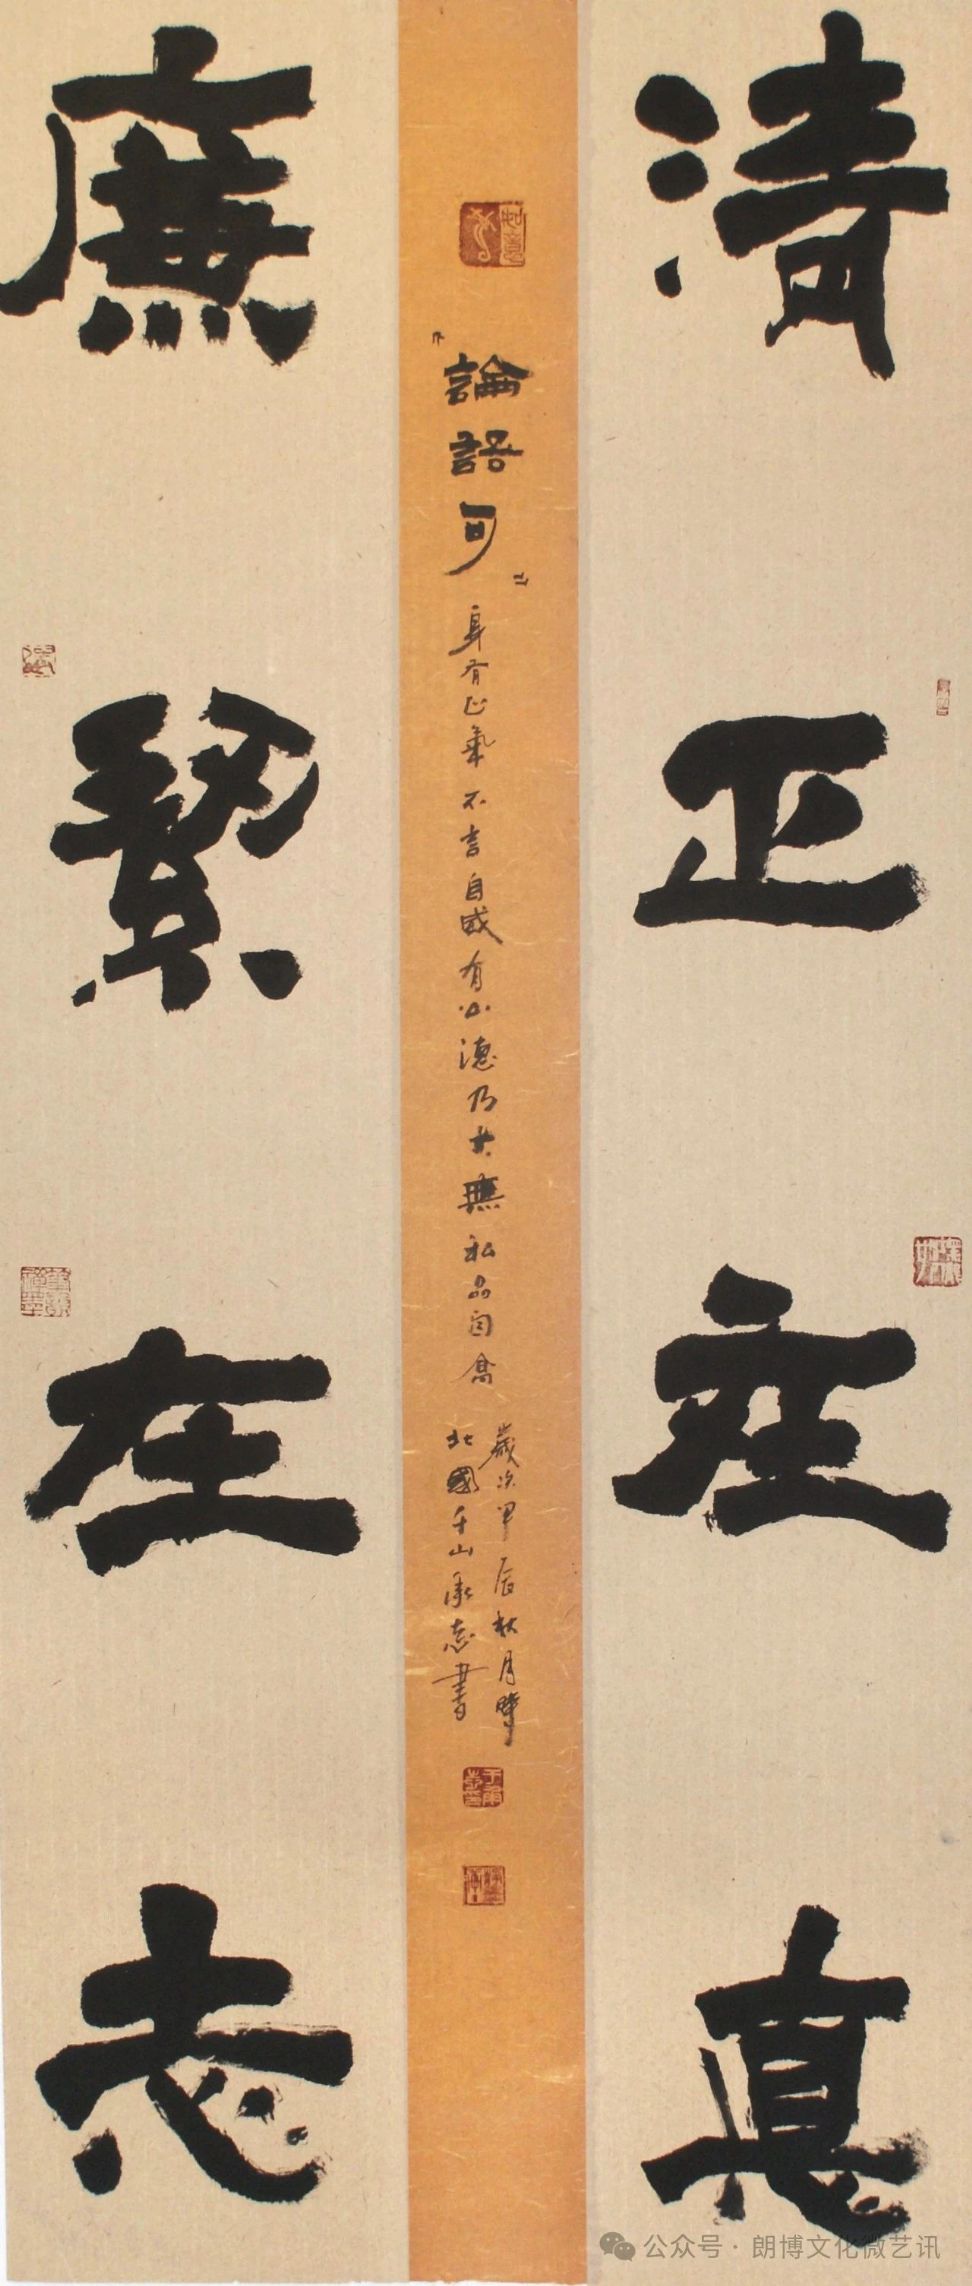 清正在悳
『論語句』
身有正氣不言自威有公德乃大無私品自高
歲次甲辰秋月時
北國千山承志書
廉絜在志
公众号·朗博文化微艺讯